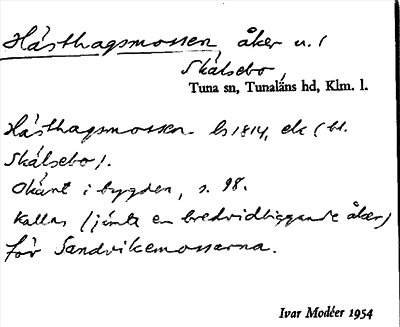 Hästhagsmossen, åker u. /
Skälsebo,
Tuna sn, Tunaläns hd, Klm. l.
Hästhagsmossen ls 1814, ek (bl.
Skälsebo).
Okänt i bygden, s. 98.
Kallas (jämte en bredvidliggande åker)
för Sandvikemossarna.
Ivar Modéer 1954